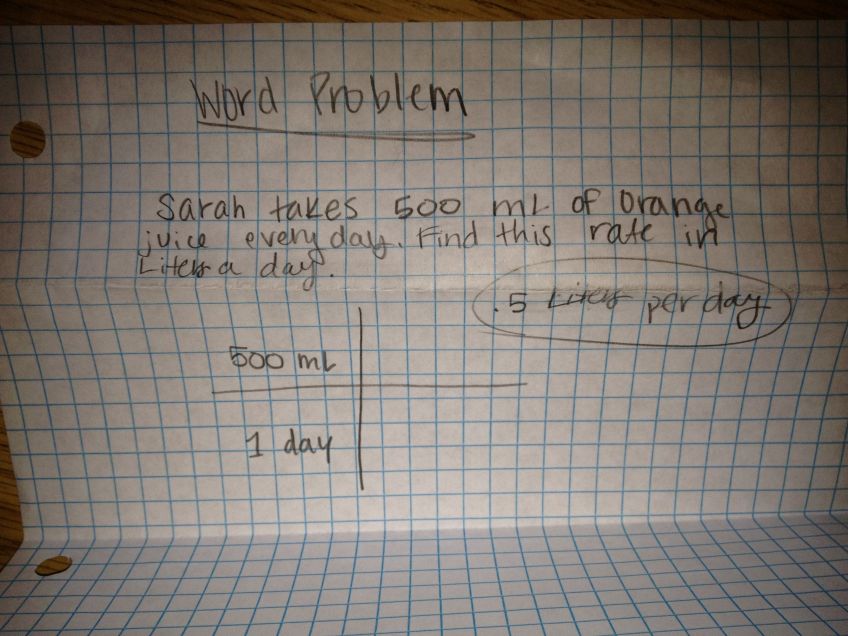 Word Problem
Sarah takes 500 mL of Orange
juice every day. Find this rate in
Liters a day.
.5 Liters per day
500 mL
1 day